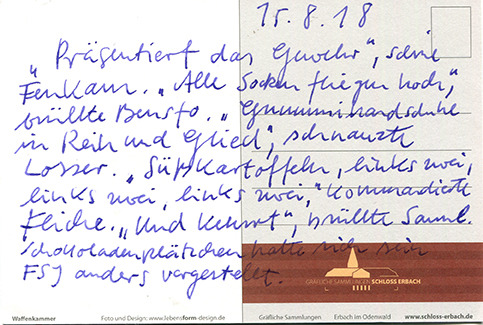 15.8.18
„Präsentiert das Gewehr", schrie
Fenkam. „Alle Socken fliegen hoch",
brüllte Bensto. „Gummihandschuhe
in Reih und Glied", schnauzte
Losser. „Süßkartoffeln, links zwei,
links zwei, links zwei," kommandierte
Fliche. „Und kehrt", brüllte Saml.
Schokoladenplätzchen hatte sich sein
FSJ anders vorgestellt.
GRÄFLICHE SAMMLUNGEN SCHLOSS ERBACH
Waffenkammer
Foto und Design: www.lebensform-design.de
Gräfliche Sammlungen
Erbach im Odenwald
www.schloss-erbach.de